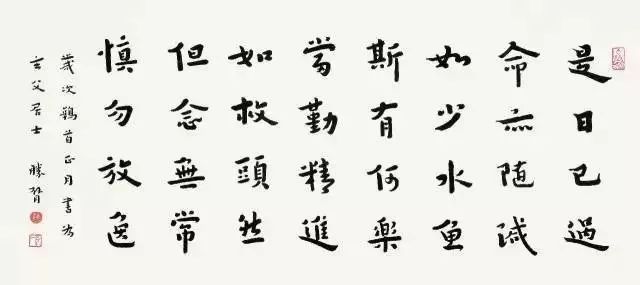 是日已過
命亦随減
如少水魚
斯有何樂
當勤精進
如救頭然
但念無常
慎勿放逸
歲次鶉首正月書為
玄父居士 勝